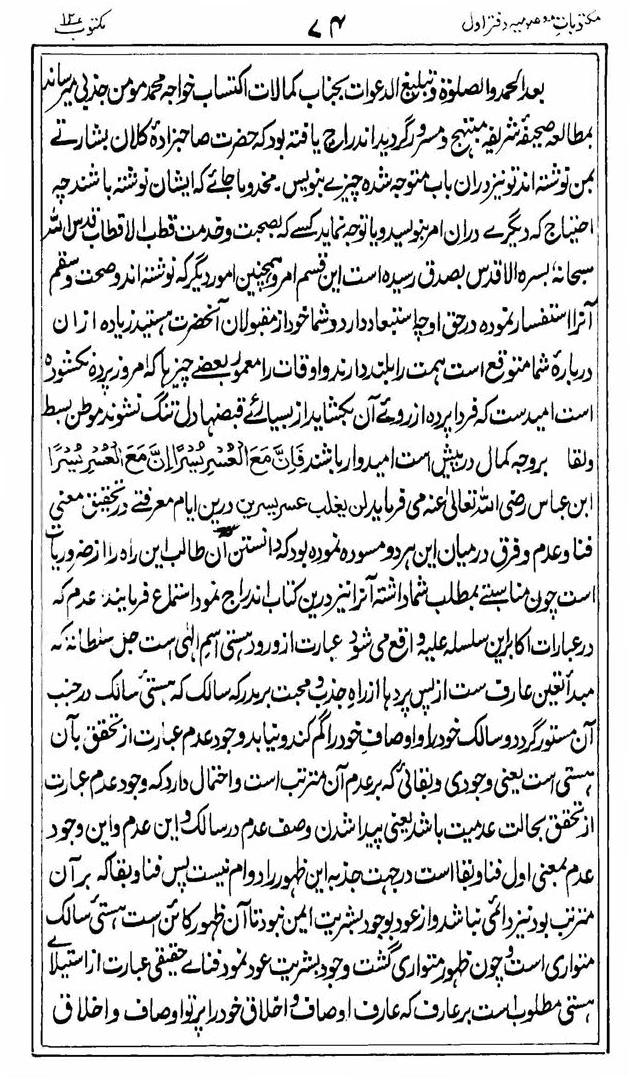 مکتوبات معصومیه دفتر اول
۷۴
مکتوب ۱۲۰
بعد الحمد والصلوٰة وتبلیغ الدعوات بجناب کمالات اکتساب خواجه محمد مومن جذبی میرساند
بمطالعه صحیفهٔ شریفه مبتهج و مسرور گردید اندراج یافته بود که حضرت صاحبزادهٔ کلان بشارتے
بمن نوشته اند تو نیز دران باب متوجه شده چیزے بنویس۔ مخدوما جائے که ایشان نوشته باشند چه
احتیاج که دیگرے دران امر بنویسد و یا توجه نماید کسے که بصحبت و خدمت قطب الاقطاب قدس الله
سبحانهٔ بسره الاقدس بصدق رسیده است این قسم امر و همچنین امور دیگر که نوشته اند و صحت و سقم
آنرا استفسار نموده در حق او چه استبعاد دارد و شما خود از مقبولان آنحضرت هستید زیاده ازان
دربارهٔ شما متوقع است همت را بلند دارند و اوقات را معمور بعضے چیزها که امروز پرده نکشوده
است امیدست که فردا پرده از روئے آن بکشاید از بسیارئے قبضها دل تنگ نشوند موطن بسط
ولقا بروجه کمال در پیش است امیدوار باشند فَاِنَّ مَعَ الْعُسْرِ یُسْرًا اِنَّ مَعَ الْعُسْرِ یُسْرًا
ابن عباس رضی الله تعالیٰ عنه می فرماید لن یغلب عسر یسرین درین ایام معرفتے در تحقیق معنی
فنا و عدم و فرق درمیان این هر دو مسوده نموده بود که دانستن آن طالب این راه را از ضروریات
است چون مناسبتے بمطلب شما داشته آنرا نیز درین کتاب اندراج نمود استماع فرمایند عدم که
در عبارات اکابر این سلسله علیه واقع می شود عبارت از ورود هستی اسم الٰهی ست جل سلطانهٔ که
مبدأ تعین عارف ست از پس پردها از راه جذب و محبت بر مدرکه سالک که هستیٔ سالک در جنب
آن مستور گردد و سالک خود را و اوصاف خود را گم کند و نیابد وجود عدم عبارت از تحقق بآن
هستی است یعنی وجودی و بقائی که بر عدم آن مترتب است و احتمال دارد که وجود عدم عبارت
از تحقق بحالت عدمیت باشد یعنی پیدا شدن وصف عدم در سالک و این عدم و این وجود
عدم بمعنی اول فنا و بقا است در جهت جذبه این ظهور را دوام نیست پس فنا و بقا که بر آن
مترتب بود نیز دائمی نباشد و از عود بوجود بشریت ایمن نبود تا آن ظهور کائن است هستیٔ سالک
متواری است و چون ظهور متواری گشت وجود بشریت عود نمود فنائے حقیقی عبارت از استیلائے
هستی مطلوب است بر عارف که عارف اوصاف و اخلاق خود را پرتو اوصاف و اخلاق